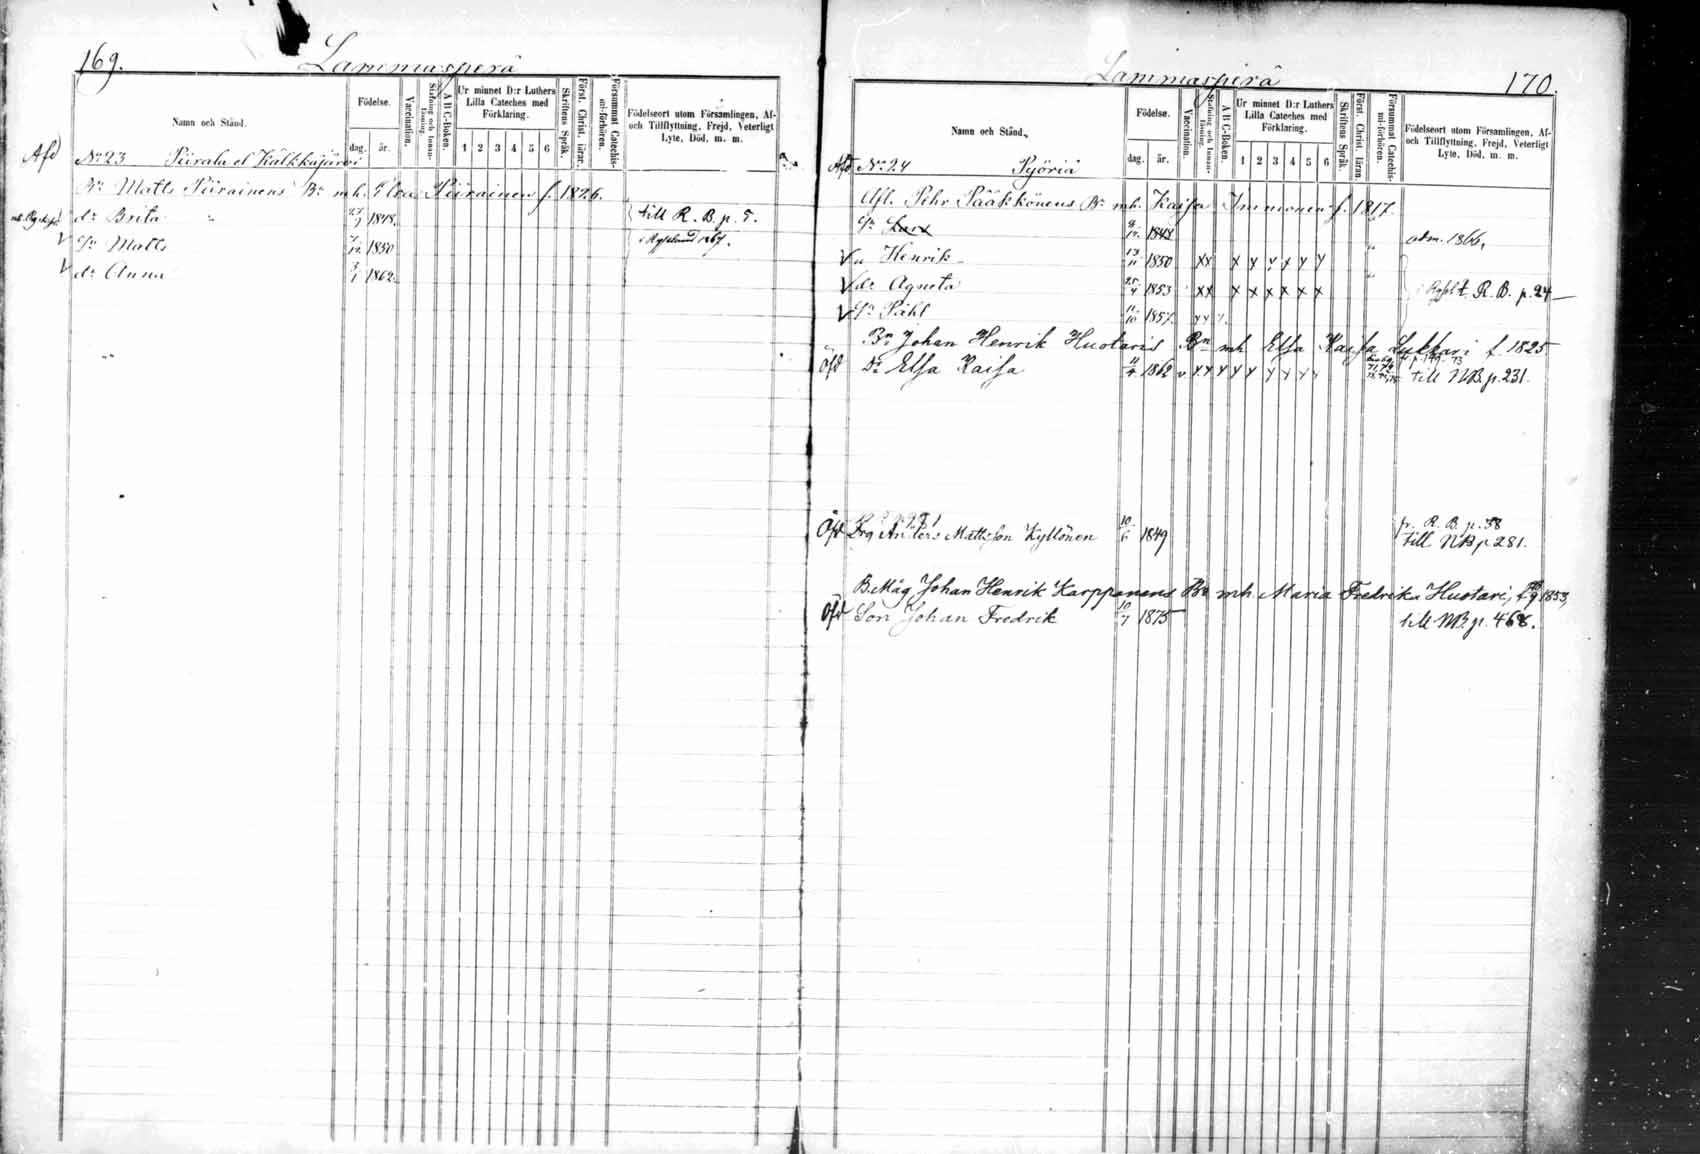 169.
Lammasperä
Namn och Stånd.
Födelse.
dag. år.
Vaccination.
Stafning och Innanläsning.
A B C-Boken.
Ur minnet D:r Luthers Lilla Cateches med Förklaring.
1 2 3 4 5 6
Skriftens Språk.
Först. Christ. läran.
Försummat Catechismi-förhören.
Födelseort utom Församlingen, Af- och Tillflyttning, Frejd, Veterligt Lyte, Död. m. m.
Afd No 23 Piirala el Kälkkäjärvi
Bn Matts Piirainens Bn mh. Elsa Piirainen f. 1826.
dr Brita 1848. till R. B. p. 5.
Sn Matts 1850 i Ryssland 1867.
dr Anna 3/1 1862.
Lammasperä
170.
Namn och Stånd.
Födelse.
dag. år.
Vaccination.
Stafning och Innanläsning.
A B C-Boken.
Ur minnet D:r Luthers Lilla Cateches med Förklaring.
1 2 3 4 5 6
Skriftens Språk.
Först. Christ. läran.
Försummat Catechismi-förhören.
Födelseort utom Församlingen, Af- och Tillflyttning, Frejd, Veterligt Lyte, Död. m. m.
Afd No 24 Pyöriä
Afl. Pehr Pääkkönens Bn mh. Kajsa Immonen f. 1817.
Sn Lars 9/12 1848 adm. 1866.
V " Henrik 13/11 1850 x x x x x x x x
V dr Agneta 25/4 1853 x x x x x x x x R. B. p. 24
V Sn Påhl 11/10 1857.
Bn Johan Henrik Huotaris Bn mh Elsa Kajsa Lukkari f. 1825
Öfd Dr Elsa Kaisa 11/4 1862 v x x x x x x x x till NB. p. 231.
Öfd Drg Anders Mattsson Kyllönen 10/6 1849 fr. R. B. p. 38
till NB p 281.
B. Måg Johan Henrik Karppanens Bn mh Maria Fredrika Huotari, f. 1853,
Öfd Son Johan Fredrik 10/7 1875 till NB. p. 468.